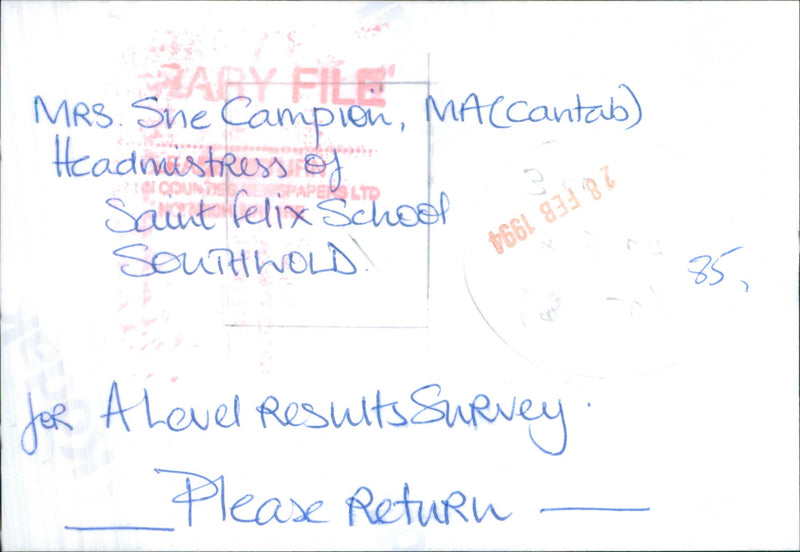 RARY FILE
MRS. Sue Campion, MA(Cantab)
Headmistress of
N COUNTIES NEWSPAPERS LTD
Saint Felix School
SOUTHWOLD.
28 FEB 1994
85,
for A Level Results Survey.
Please Return